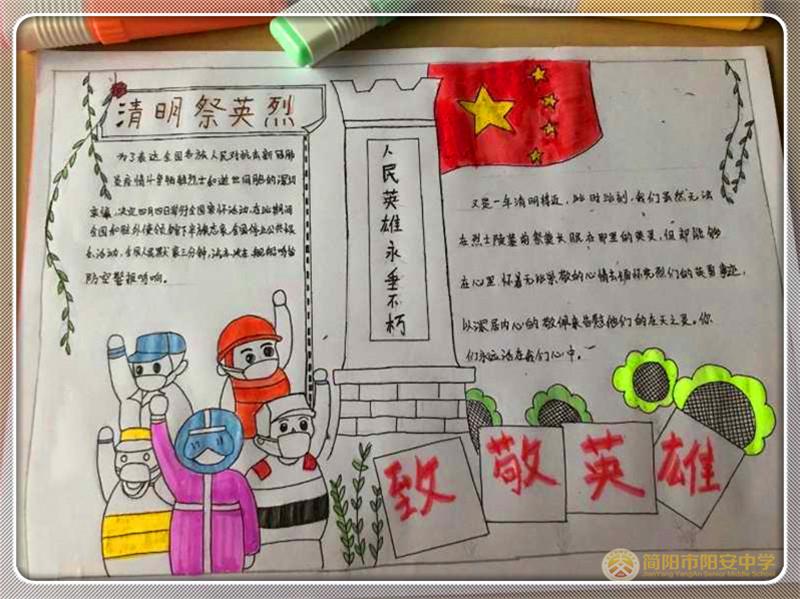 清明祭英烈
为了表达全国各族人民对抗击新冠肺
炎疫情斗争牺牲烈士和逝世同胞的深切
哀悼,决定四月四日举行全国哀悼活动,在此期间
全国和驻外使领馆下半旗志哀,全国停止公共娱
乐活动,全国人民默哀三分钟,汽车火车舰船鸣笛
防空警报鸣响。
人民英雄永垂不朽
又是一年清明将近,此时此刻,我们虽然无法
在烈士陵墓前祭奠长眠在那里的英灵,但却能够
在心里怀着无比崇敬的心情去缅怀先烈们的英勇事迹,
以深居内心的敬佩来告慰他们的在天之灵。你
们永远活在我们心中。
致敬英雄
简阳市阳安中学
JianYang YangAn Senior Middle School